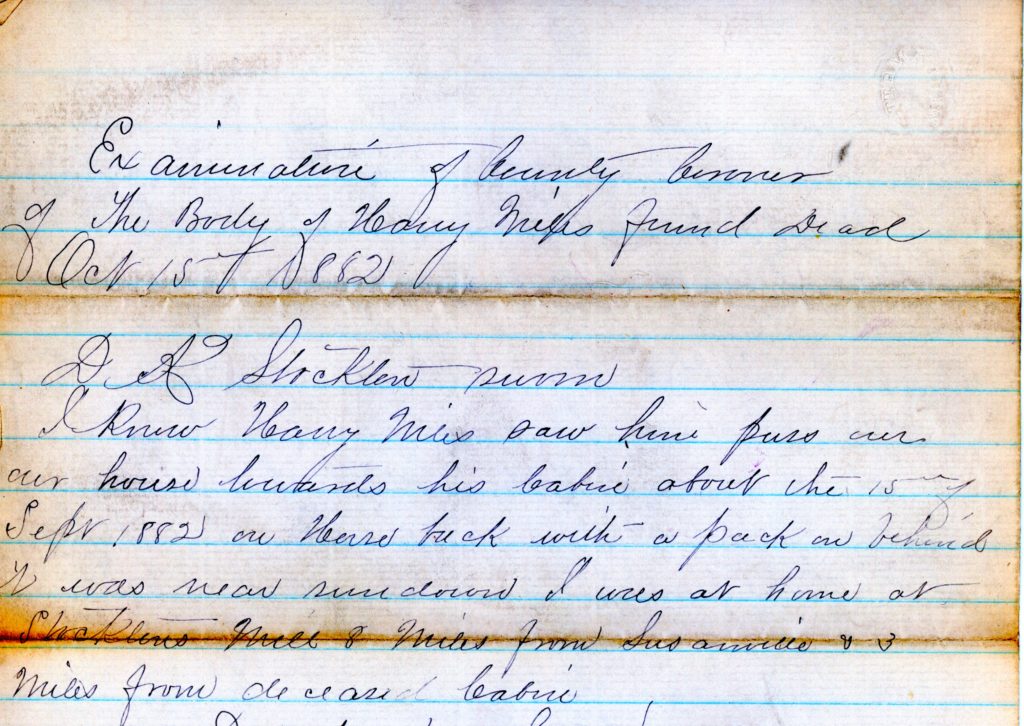 Examination of County Coroner
of The Body of Harry Miles found Dead
Oct 15th 1882
D Stockton sworn
I Knew Harry Miles saw him pass our
our house towards his Cabin about the 15th of
Sept 1882 on Horse back with a pack on behind
It was near sundown I was at home at
Stocktons Mill 8 Miles from Susanville & 3
Miles from deceased Cabin